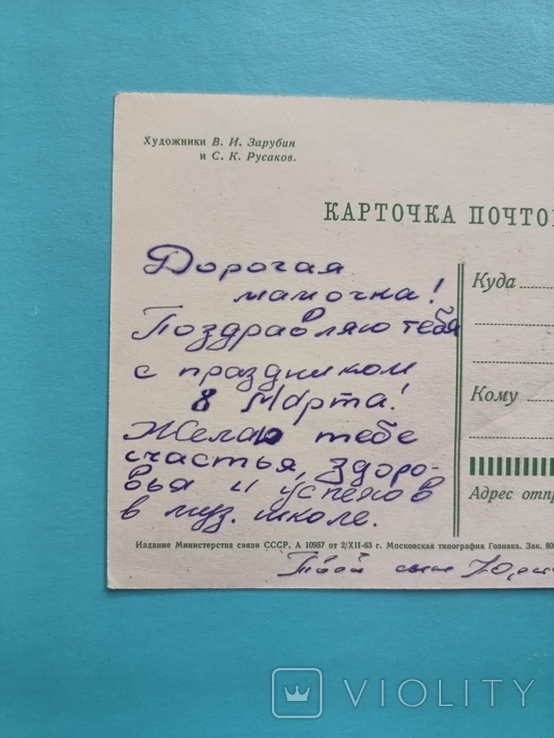 Художники В. И. Зарубин
и С. К. Русаков.
КАРТОЧКА ПОЧТО
Дорогая
мамочка!
Поздравляю тебя
с праздником
8 Марта!
Желаю тебе
счастья, здоро-
вья и успехов
в муз. школе.
Куда
Кому
Адрес отп
Издание Министерства связи СССР. А 10957 от 2/XII-63 г. Московская типография Гознака. Зак. 80
Твой сын
VIOLITY